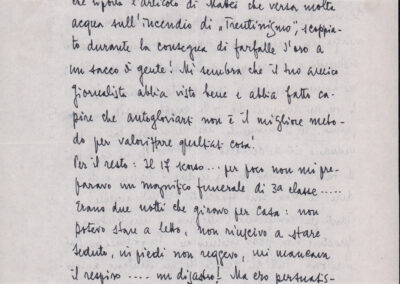 che riporta l'articolo di Mabei che versa molta
acqua sull'incendio di „Trentinismo", scoppia-
to durante la consegna di farfalle d'oro a
un sacco di gente! Mi sembra che il tuo amico
giornalista abbia visto bene e abbia fatto ca-
pire che autogloriarsi non è il migliore meto-
do per valorizzare qualsiasi cosa!
Per il resto: Il 17 scorso... per poco non mi pre-
paravo un magnifico funerale di 3a classe.....
Erano due notti che giravo per casa: non
potevo stare a letto, non riuscivo a stare
seduto, in piedi non reggevo, mi mancava
il respiro.... un disastro! Ma ero persuatis-